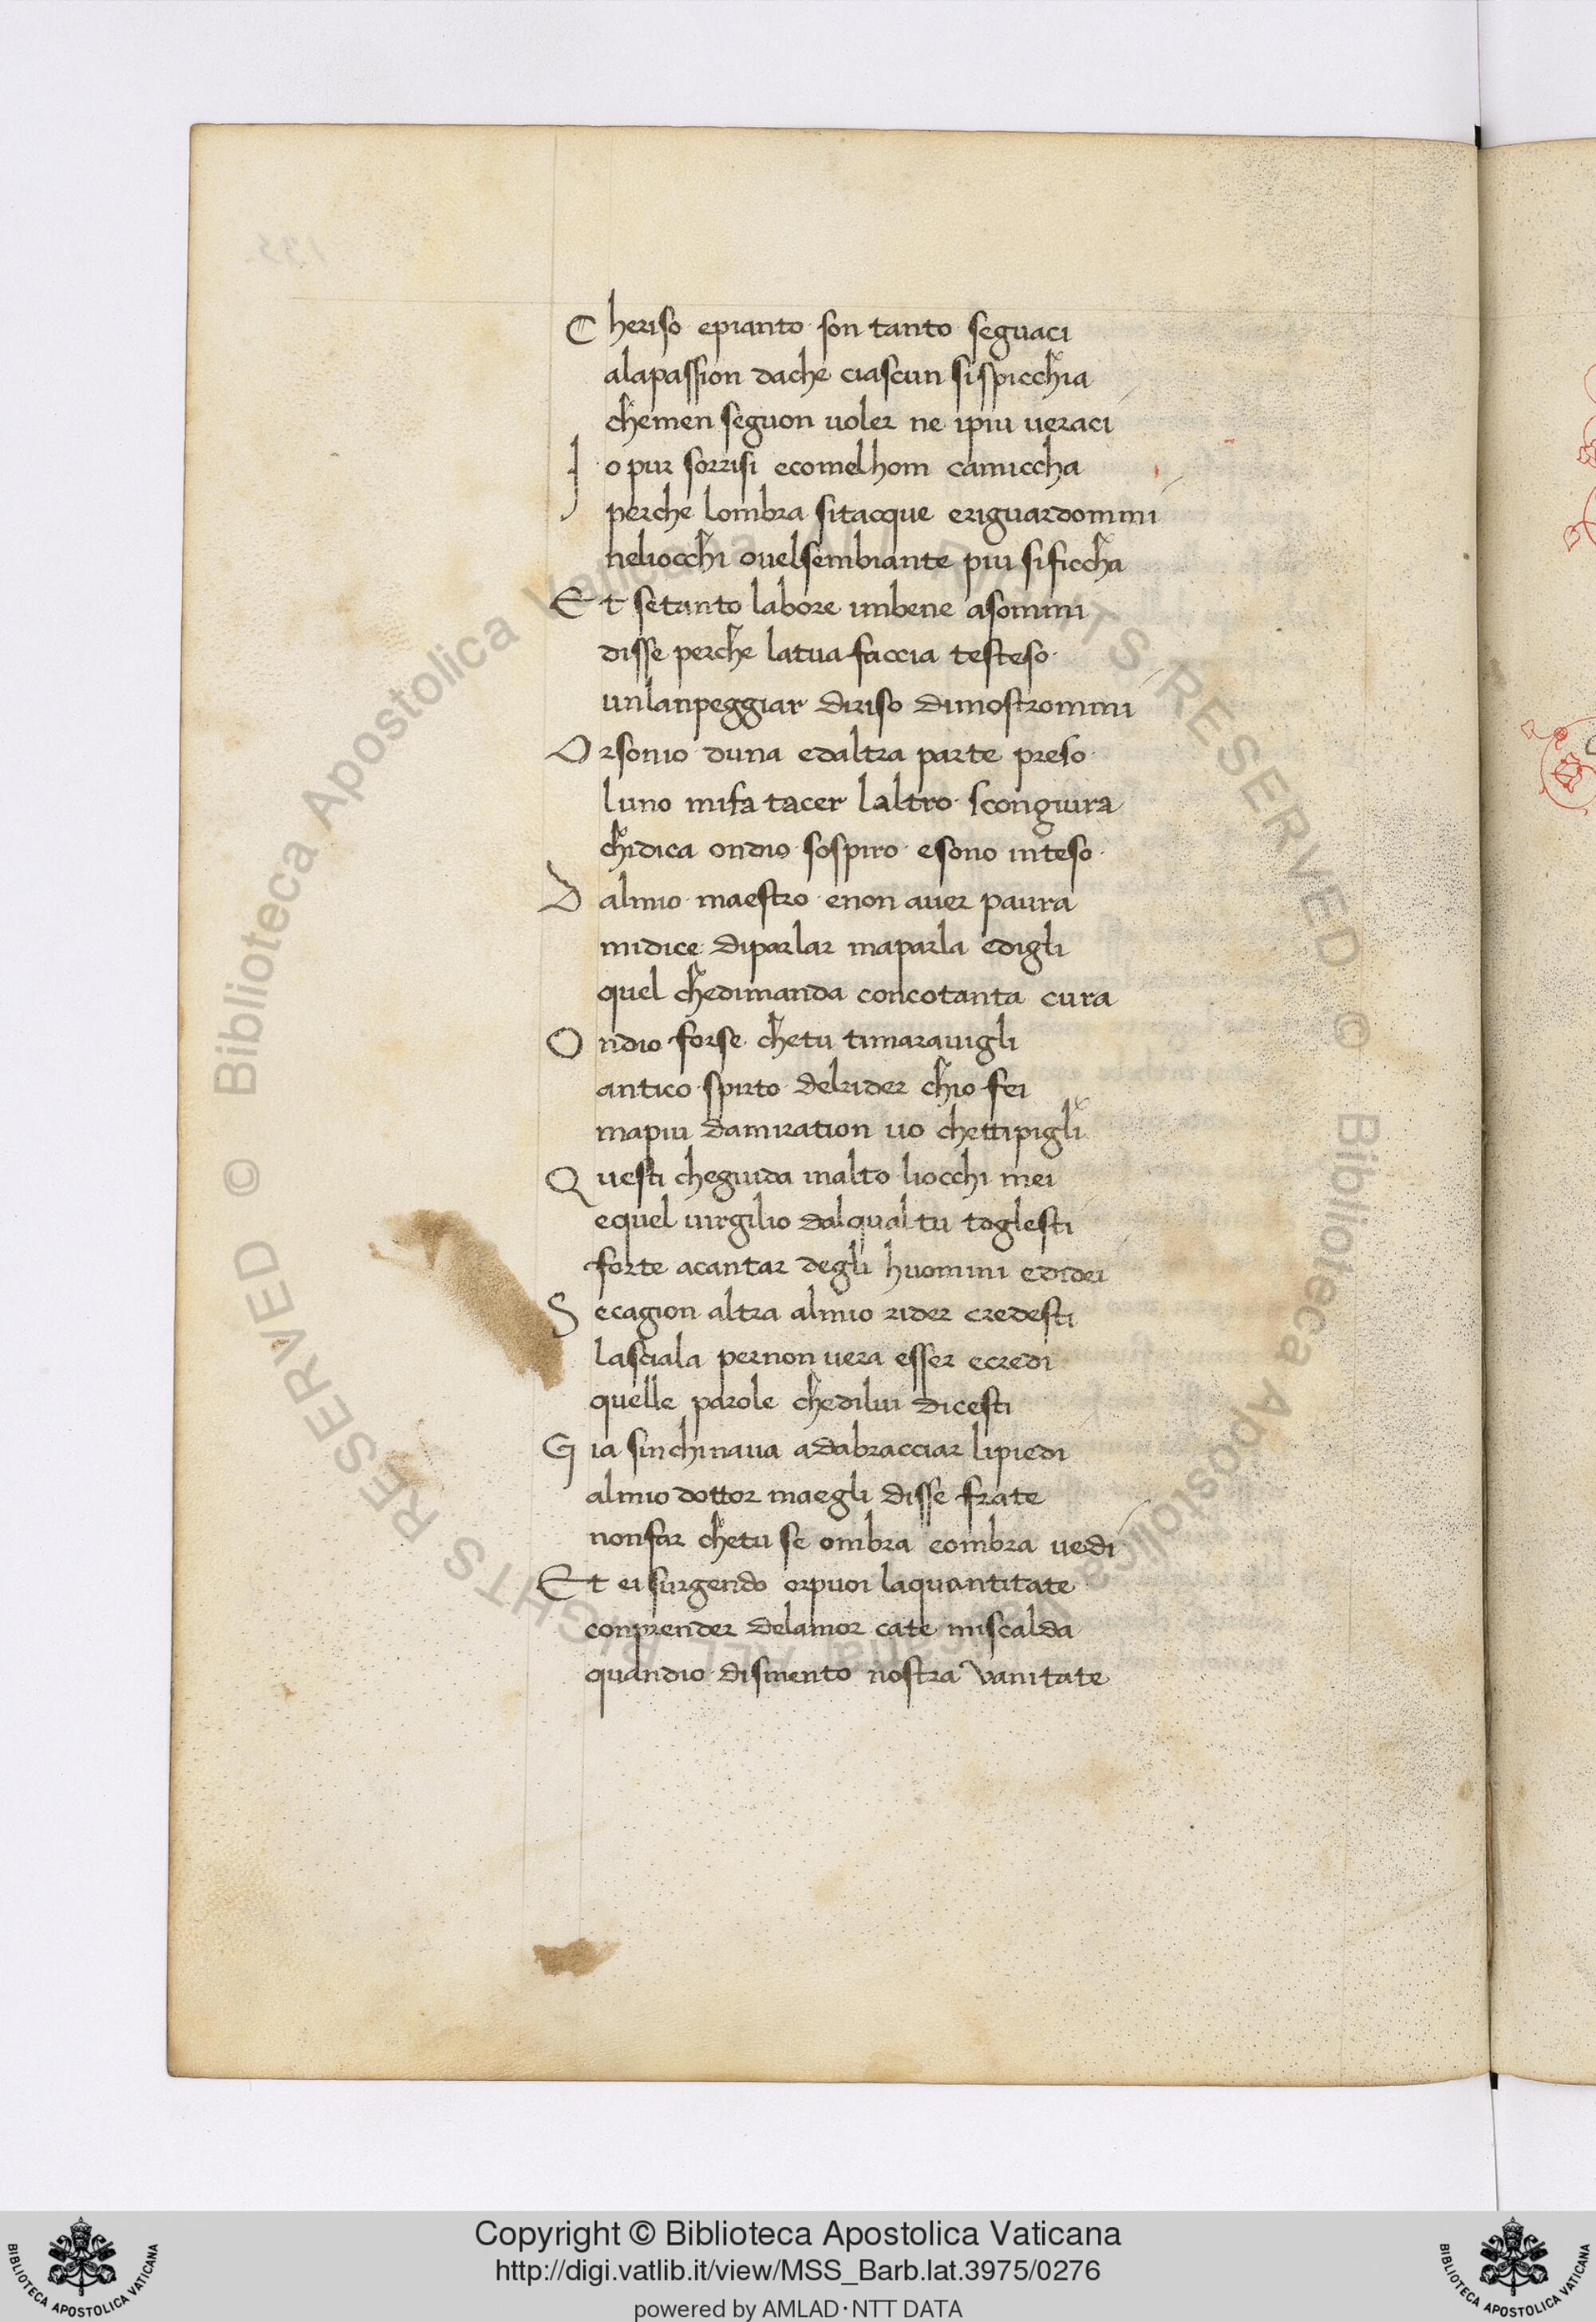 Cheriso epianto son tanto seguaci
alapassion dache ciascun sispicchia
chemen seguon uoler ne ipiu ueraci
Io pur sorrisi ecomelhom camiccha
perche lombra sitacque eriguardommi
neliocchi ouelsembiante piu sificcha
Et setanto labore inbene asommi
disse perche latua faccia testeso
unlanpeggiar diriso dimostrommi
Orsonio duna edaltra parte preso
luno mifa tacer laltro scongiura
chidica ondio sospiro esono inteso
Dalmio maestro enon auer paura
midice diparlar maparla edigli
quel chedimanda concotanta cura
Ondio forse chetu timarauigli
antico spirto delrider chio fei
mapiu damiration uo chettipigli
Questi cheguida inalto liocchi mei
equel uirgilio dalqual tu toglesti
forte acantar degli huomini edidei
Secagion altra almio rider credesti
lasciala pernon uera esser ecredi
quelle parole chedilui dicesti
Gia sinchinaua adabracciar lipiedi
almio dottor maegli disse frate
nonfar chetu se ombra eombra uedi
Et ei surgendo orpuoi laquantitate
conprender delamor cate miscalda
quandio dismento nostra vanitate
© Biblioteca Apostolica Vaticana ALL RIGHTS RESERVED © Biblioteca Apostolica Vaticana ALL RIGHTS RESERVED
Copyright © Biblioteca Apostolica Vaticana
http://digi.vatlib.it/view/MSS_Barb.lat.3975/0276
powered by AMLAD·NTT DATA
BIBLIOTECA APOSTOLICA VATICANA
BIBLIOTECA APOSTOLICA VATICANA